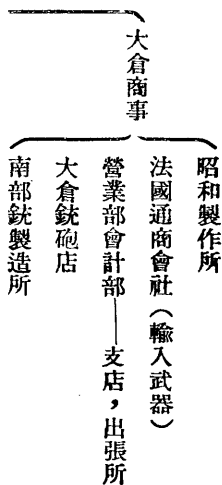 大倉商事
昭和製作所
法國通商會社(輸入武器)
營業部會計部——支店，出張所
大倉銃砲店
南部銃製造所